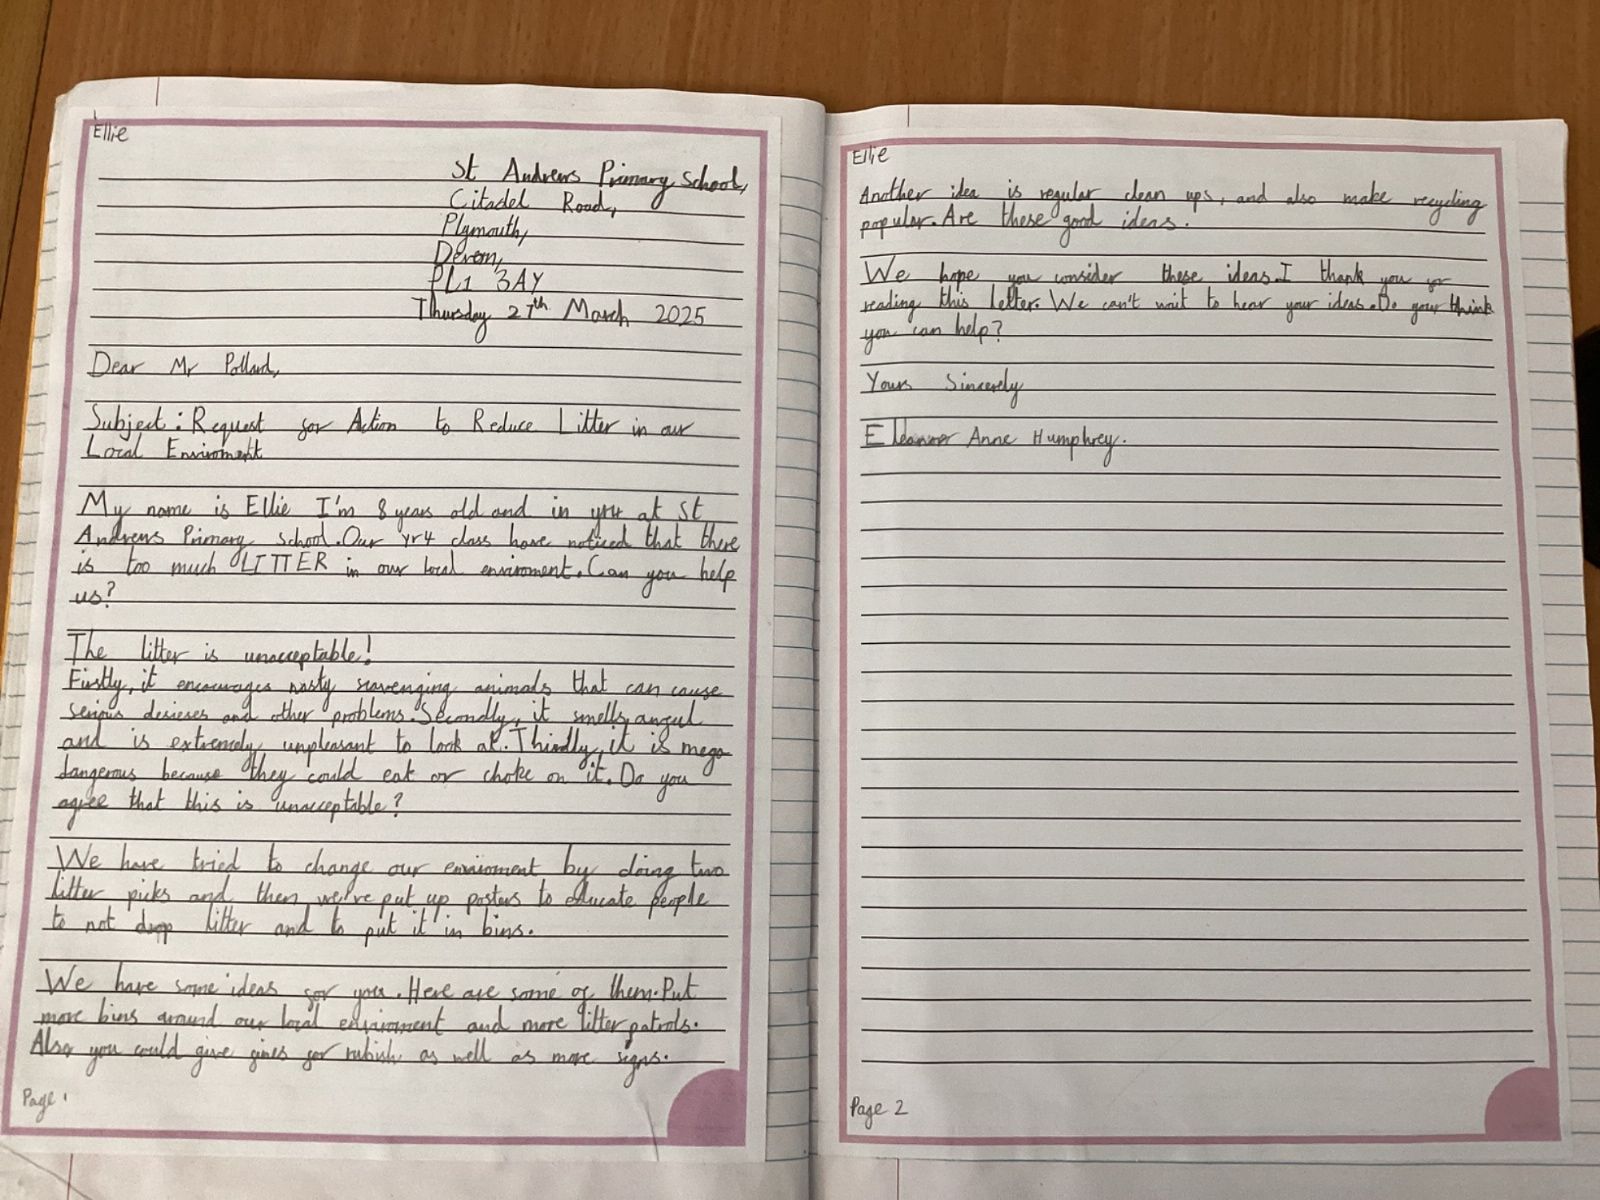 Ellie
St Andrews Primary School,
Citadel Road,
Plymouth,
Devon,
PL1 3AY
Thursday 27th March 2025
Dear Mr Pollard,
Subject: Request for Action to Reduce Litter in our
Local Enviroment
My name is Ellie I'm 8 years old and in yr4 at St
Andrews Primary School. Our yr4 class have noticed that there
is too much LITTER in our local enviroment. Can you help
us?
The litter is unacceptable!
Firstly, it encourages nasty scavenging animals that can cause
serious desieses and other problems. Secondly, it smells, awful
and is extremely unpleasant to look at. Thirdly, it is mega
dangerous because they could eat or choke on it. Do you
agree that this is unacceptable?
We have tried to change our enviroment by doing two
litter picks and then we've put up posters to educate people
to not drop litter and to put it in bins.
We have some ideas for you. Here are some of them. Put
more bins around our local enviroment and more litter patrols.
Also you could give fines for rubish as well as more signs.
Page 1
Ellie
Another idea is regular clean ups, and also make recycling
popular. Are these good ideas.
We hope you consider these ideas. I thank you for
reading this letter. We can't wait to hear your ideas. Do your think
you can help?
Yours Sincerely
Eleanor Anne Humphrey.
Page 2